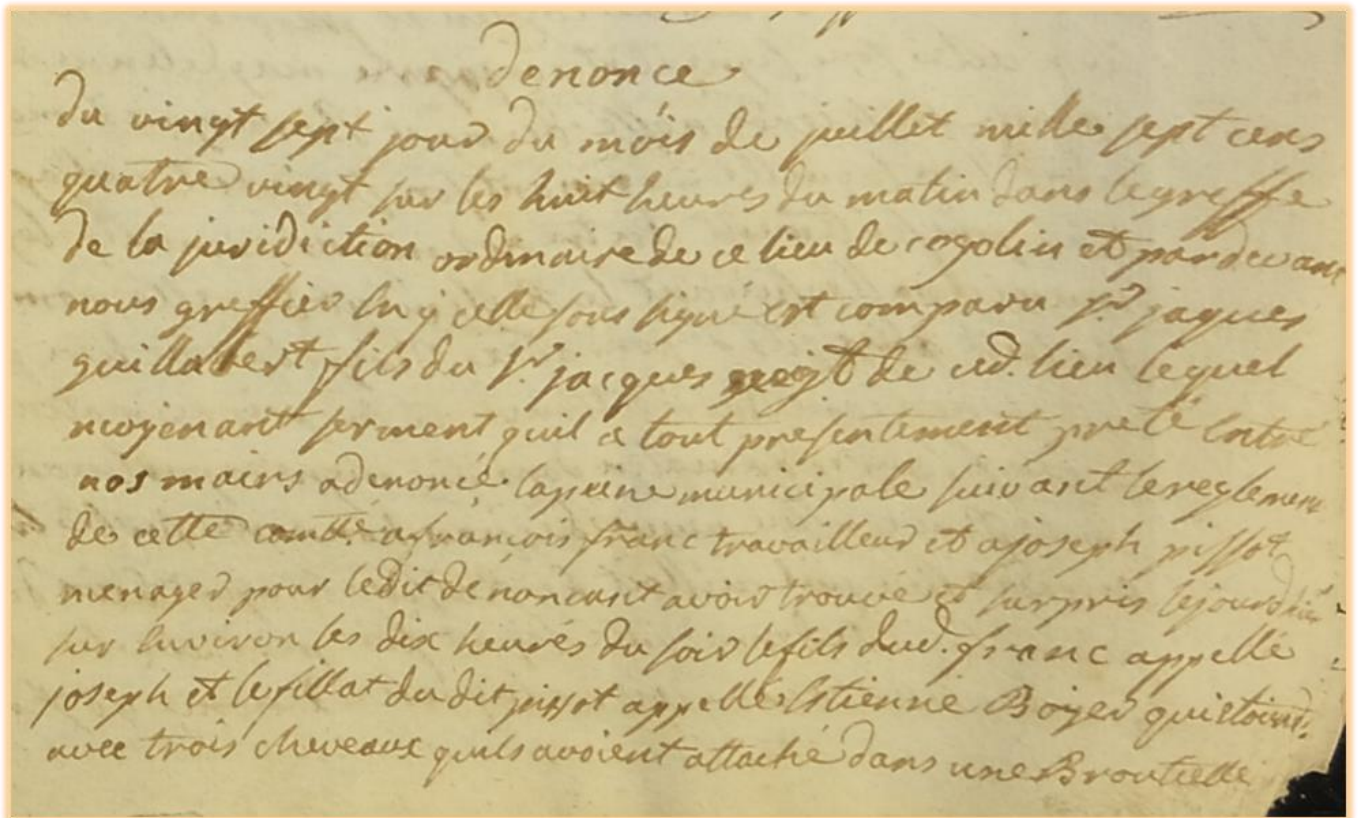 denonce
du vingt sept jour du mois de juillet mille sept cens
quatre vingt sur les huit heures du matin dans le greffe
de la juridiction ordinaire de ce lieu de cogolin et pardevant
nous greffier en ycelle sous signé est comparu Sr. jaques
guillabert fils du Sr. jacques de ced. lieu lequel
moyenant serment quil a tout presentement preté entre
nos mains a denoncé la peine municipale suivant le reglement
de cette comté. a françois franc travailleur et a joseph pissot
menager pour ledit denoncant avoir trouvé et surpris le jourd'hier
sur environ les dix heures du soir le fils dud. franc appellé
joseph et le fillat du dit pissot appellé Estienne Boyer qui etoient
avec trois cheveaux quils avoient attaché dans une Broutielle